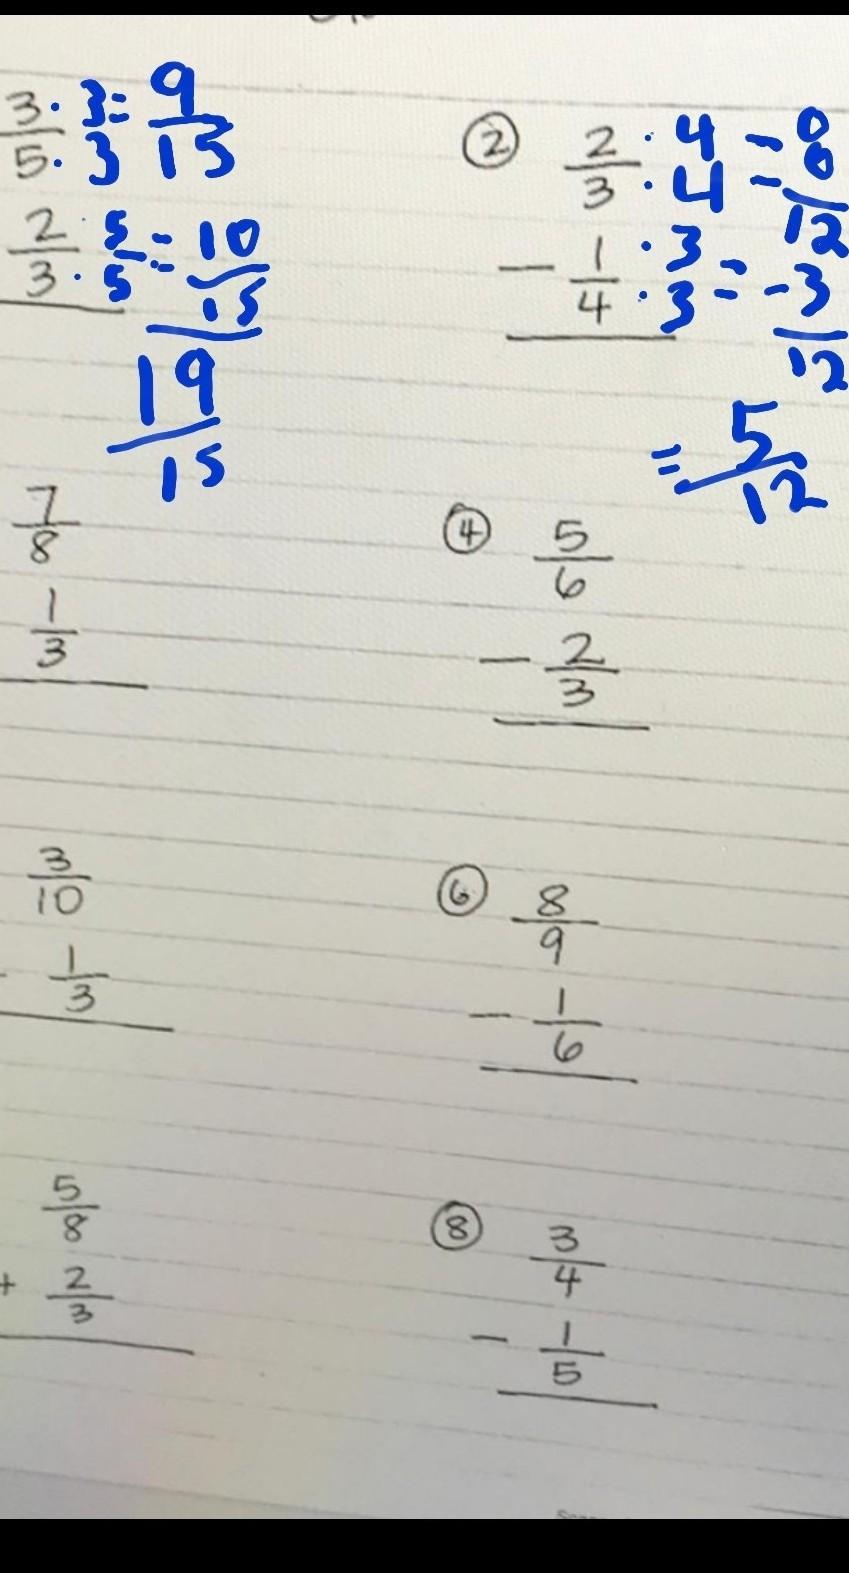 3/5 · 3/3 = 9/15
2/3 · 5/5 = 10/15
19/15
② 2/3 · 4/4 = 8/12
- 1/4 · 3/3 = -3/12
= 5/12
7/8
1/3
④ 5/6
- 2/3
3/10
1/3
⑥ 8/9
- 1/6
5/8
+ 2/3
⑧ 3/4
- 1/5